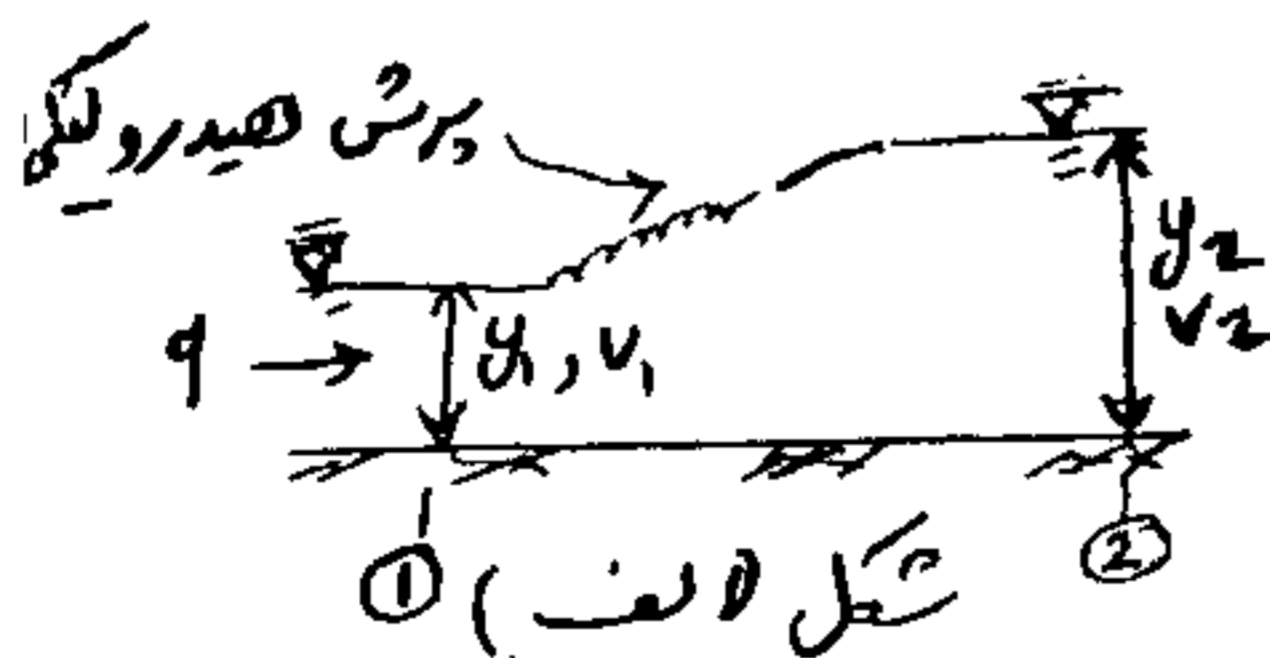 پرش هیدرولیکی
q → y₁, v₁
y₂
v₂
① ②
شکل (الف)